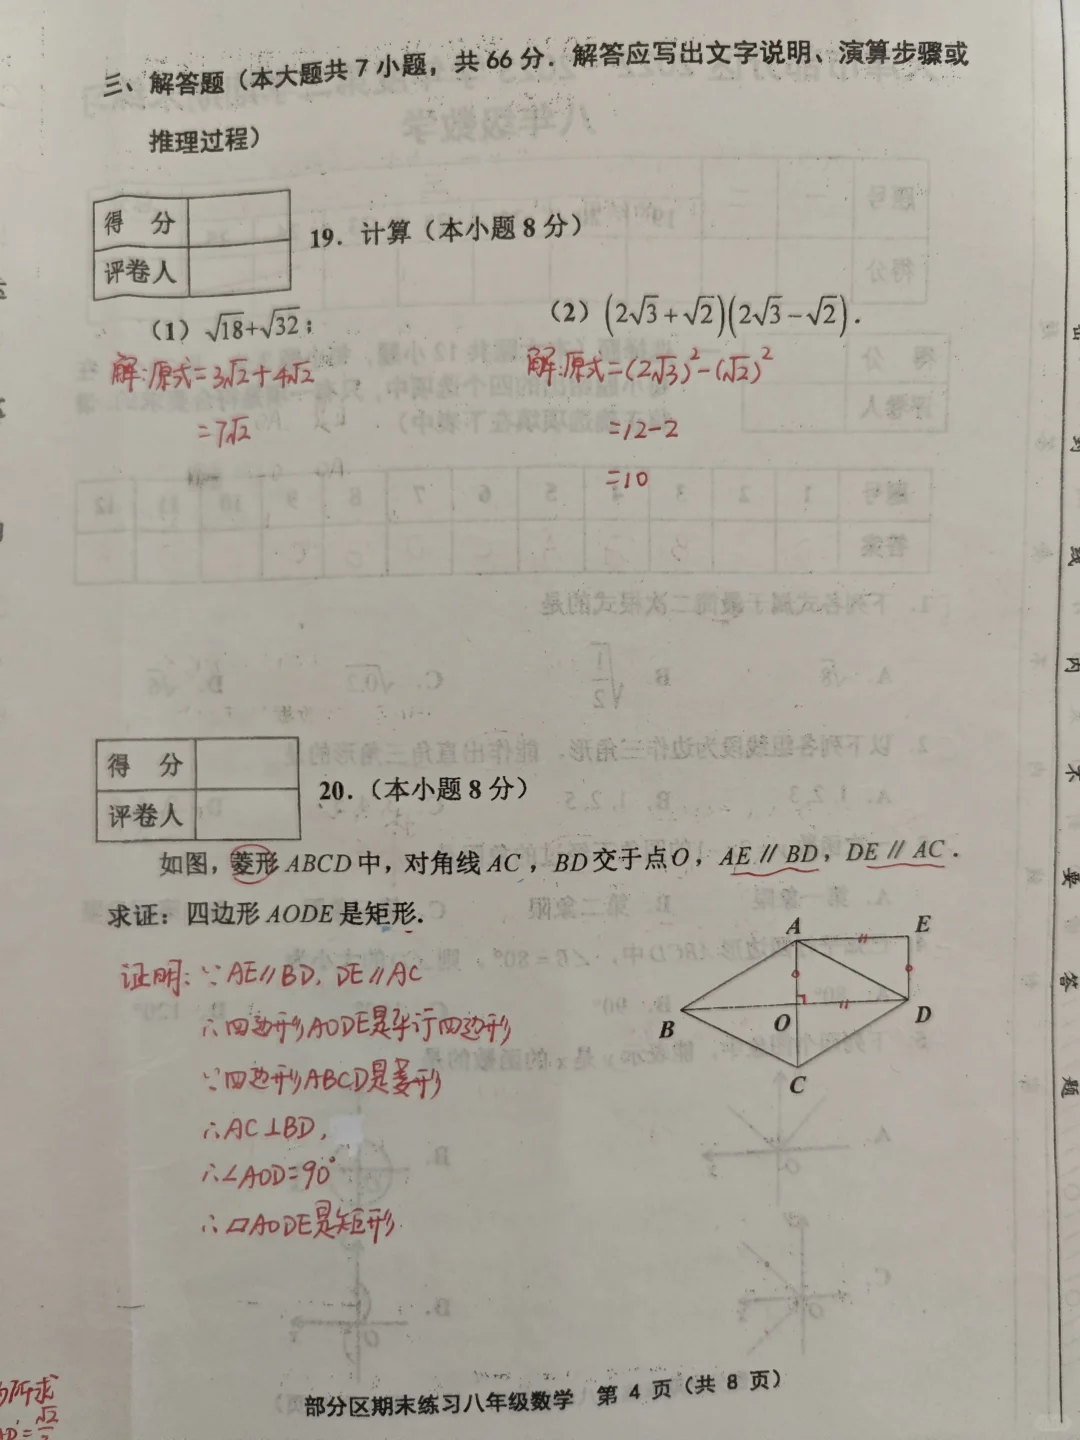 三、解答题（本大题共7小题，共66分．解答应写出文字说明、演算步骤或
推理过程）
得 分
评卷人
19．计算（本小题8分）
（1）√18+√32；
（2）(2√3+√2)(2√3−√2)．
解：原式=3√2+4√2
=7√2
解：原式=(2√3)²-(√2)²
=12-2
=10
得 分
评卷人
20．（本小题8分）
如图，菱形ABCD中，对角线AC，BD交于点O，AE∥BD，DE∥AC．
求证：四边形AODE是矩形．
证明：∵AE∥BD，DE∥AC
∴四边形AODE是平行四边形
∵四边形ABCD是菱形
∴AC⊥BD，
∴∠AOD=90°
∴▱AODE是矩形
A
E
B
O
D
C
所求
部分区期末练习八年级数学 第 4 页（共 8 页）
线
内
不
要
答
题